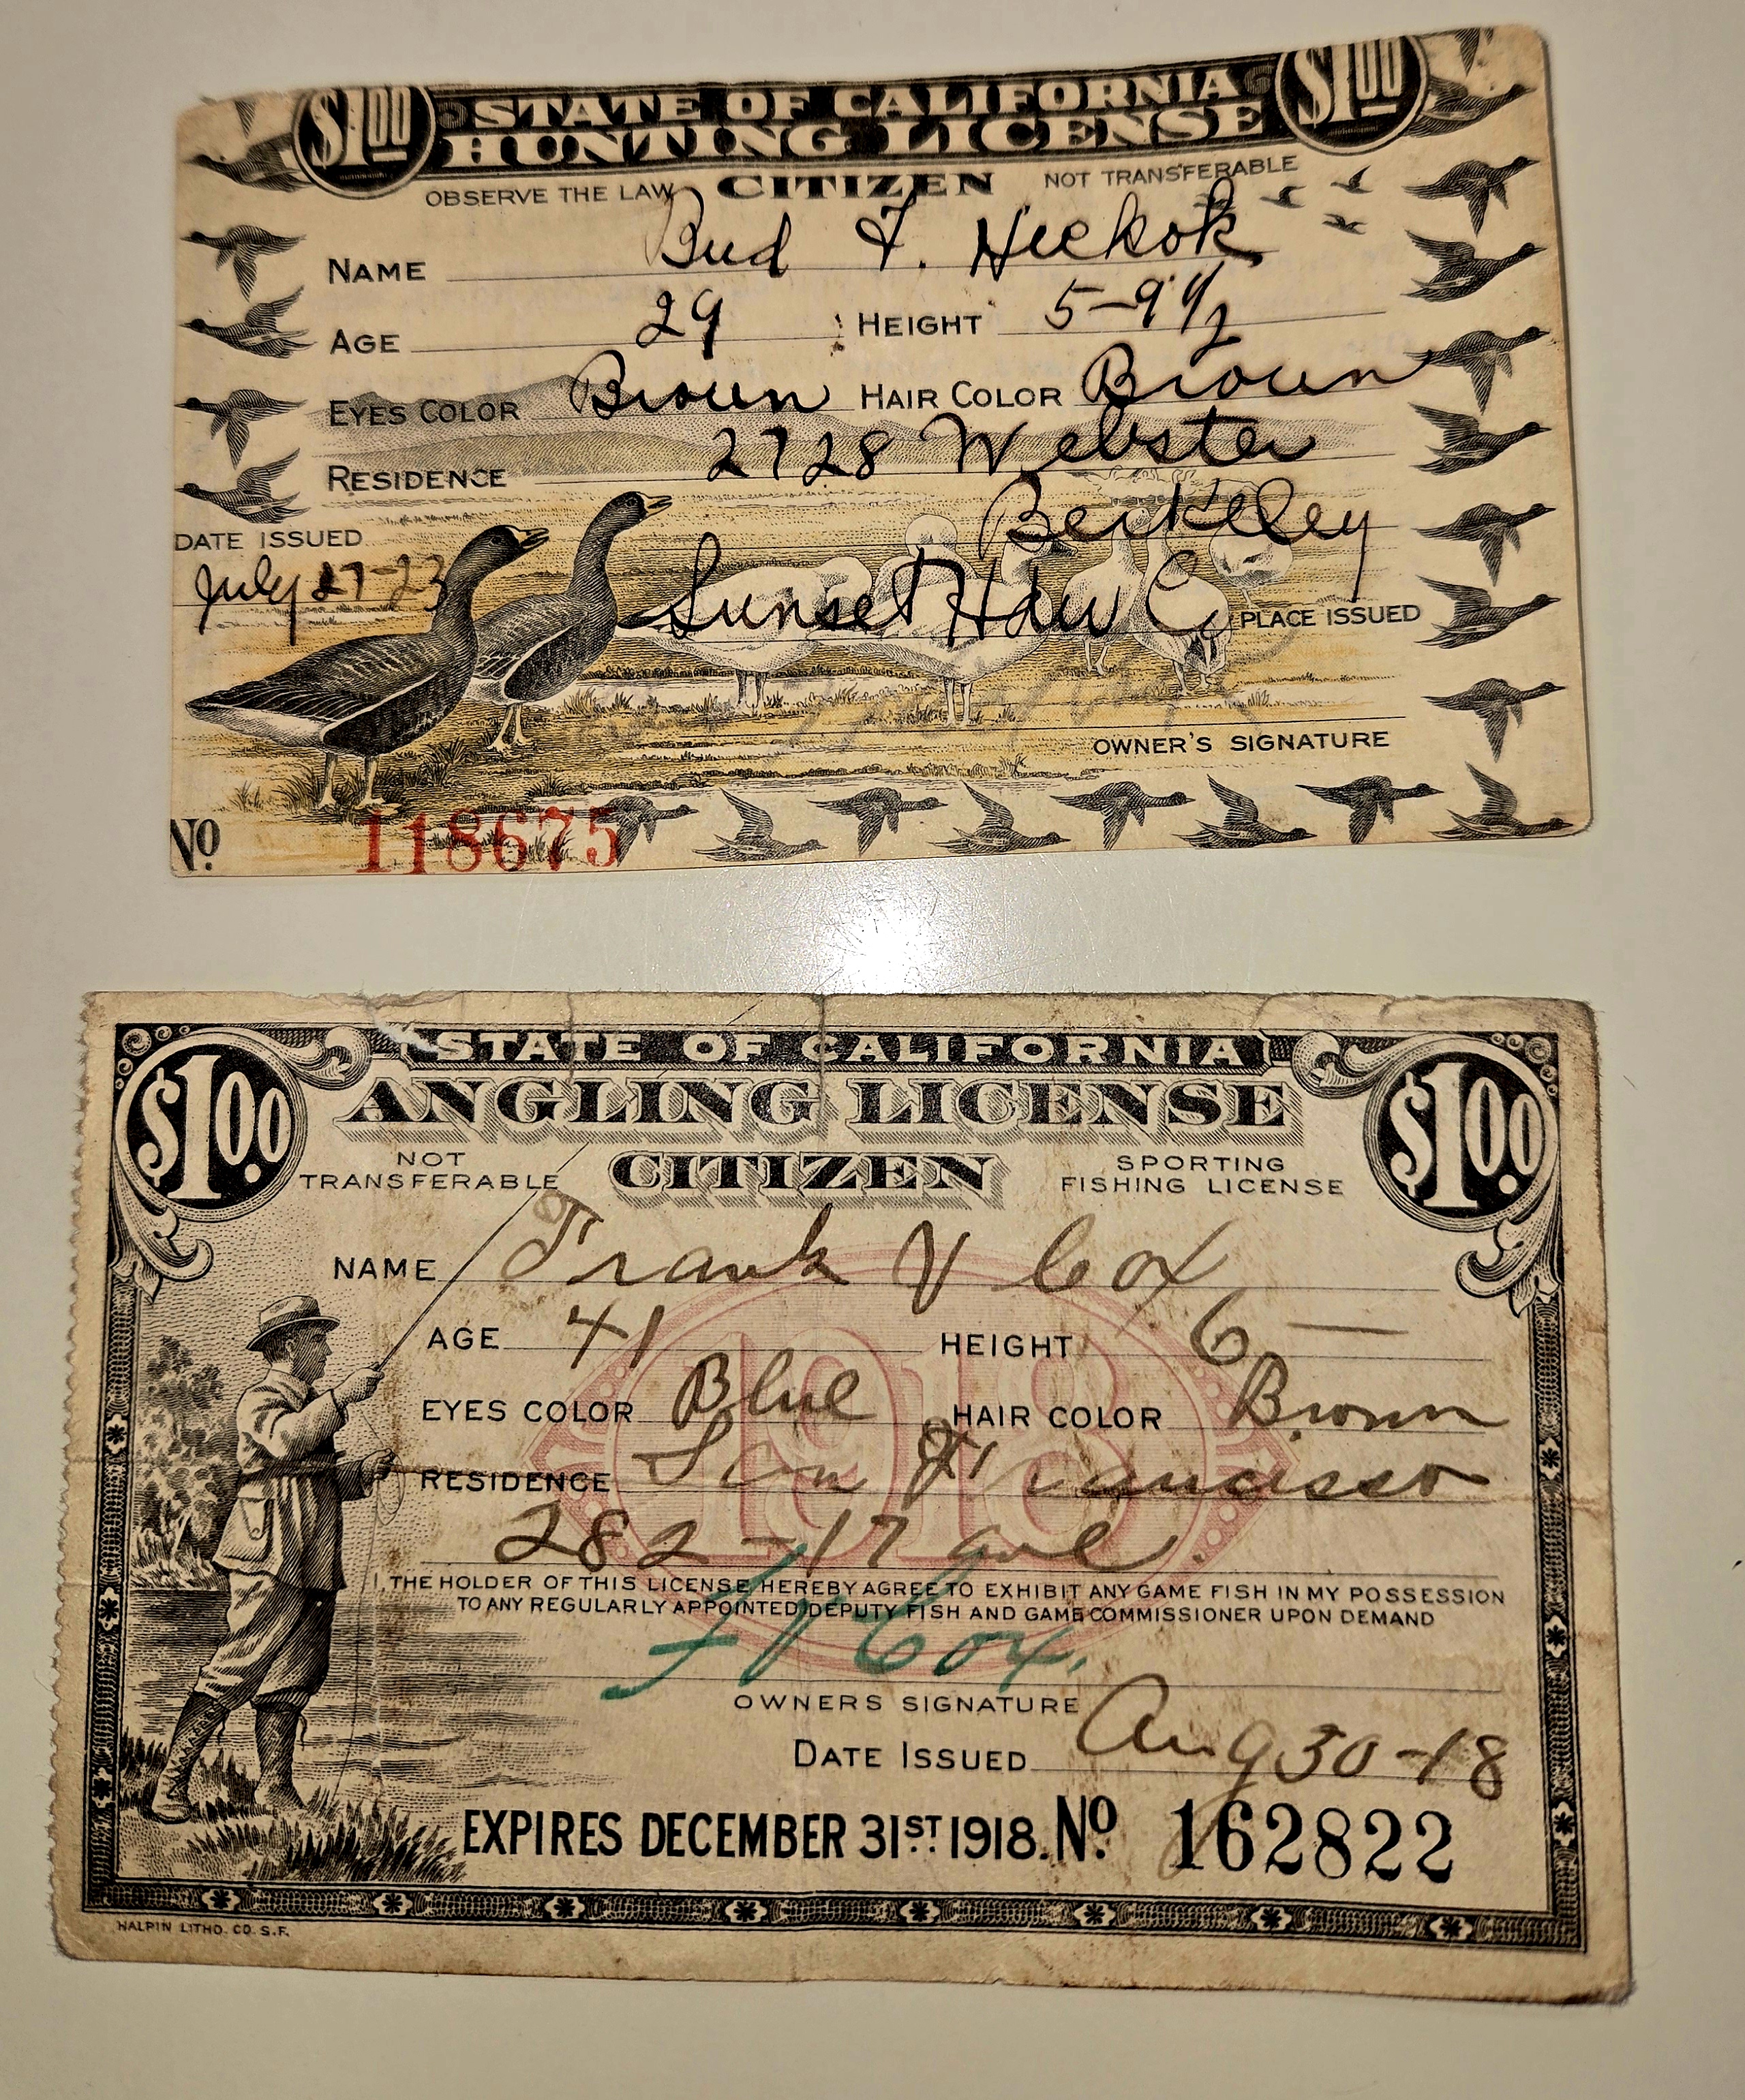 $1.00 STATE OF CALIFORNIA $1.00
HUNTING LICENSE
OBSERVE THE LAW CITIZEN NOT TRANSFERABLE
NAME Bud F. Hickok
AGE 29 HEIGHT 5-9 1/2
EYES COLOR Brown HAIR COLOR Brown
RESIDENCE 2728 Webster
Berkeley
DATE ISSUED
July 27-23
Sunset Hdw C PLACE ISSUED
OWNER'S SIGNATURE
No 118675
$1.00 STATE OF CALIFORNIA $1.00
ANGLING LICENSE
NOT TRANSFERABLE CITIZEN SPORTING FISHING LICENSE
NAME Frank V Cox
AGE 41 HEIGHT 6 —
EYES COLOR Blue HAIR COLOR Brown
1918
RESIDENCE San Francisco
282-17 ave.
I, THE HOLDER OF THIS LICENSE, HEREBY AGREE TO EXHIBIT ANY GAME FISH IN MY POSSESSION
TO ANY REGULARLY APPOINTED DEPUTY FISH AND GAME COMMISSIONER UPON DEMAND
F V Cox.
OWNERS SIGNATURE
DATE ISSUED Aug 30-18
EXPIRES DECEMBER 31ST 1918. No. 162822
HALPIN LITHO. CO. S.F.